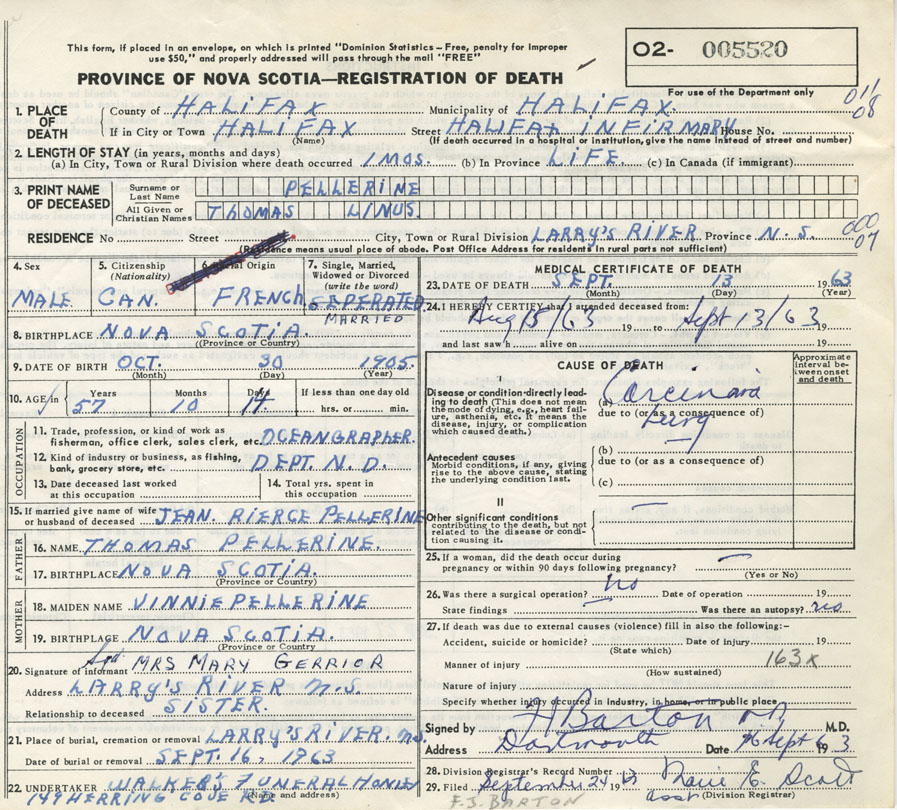 This form, if placed in an envelope, on which is printed "Dominion Statistics – Free, penalty for improper
use $50," and properly addressed will pass through the mail "FREE"
PROVINCE OF NOVA SCOTIA—REGISTRATION OF DEATH
O2- 005520
For use of the Department only
011
08
1. PLACE OF DEATH
County of HALIFAX Municipality of HALIFAX.
If in City or Town HALIFAX Street HALIFAX INFIRMARY House No.
(Name) (If death occurred in a hospital or institution, give name instead of street and number)
2. LENGTH OF STAY (in years, months and days)
(a) In City, Town or Rural Division where death occurred 1 MOS. (b) In Province LIFE. (c) In Canada (if immigrant)
3. PRINT NAME OF DECEASED
Surname or Last Name PELLERINE
All Given or Christian Names THOMAS LINUS.
RESIDENCE No Street City, Town or Rural Division LARRY'S RIVER. Province N.S.
(Residence means usual place of abode. Post Office Address for residents in rural parts not sufficient)
000
07
4. Sex MALE
5. Citizenship (Nationality) CAN.
6. Origin FRENCH
7. Single, Married, Widowed or Divorced (write the word) SEPERATED
MARRIED
8. BIRTHPLACE NOVA SCOTIA.
(Province or Country)
9. DATE OF BIRTH OCT. 30 1905.
(Month) (Day) (Year)
10. AGE in Years 57 Months 10 Days 14 If less than one day old
hrs. or min.
OCCUPATION
11. Trade, profession, or kind of work as
fisherman, office clerk, sales clerk, etc. OCEANGRAPHER.
12. Kind of industry or business, as fishing,
bank, grocery store, etc. DEPT. N. D.
13. Date deceased last worked at this occupation
14. Total yrs. spent in this occupation
15. If married give name of wife
or husband of deceased JEAN. PIERCE PELLERINE
FATHER
16. NAME THOMAS PELLERINE.
17. BIRTHPLACE NOVA SCOTIA.
(Province or Country)
MOTHER
18. MAIDEN NAME VINNIE PELLERINE
19. BIRTHPLACE NOVA SCOTIA.
(Province or Country
20. Signature of informant MRS MARY GERRIOR
Address LARRY'S RIVER N.S.
Relationship to deceased SISTER.
21. Place of burial, cremation removal LARRY'S RIVER. N.S.
Date of burial or removal SEPT. 16, 1963
22. UNDERTAKER WALKER'S FUNERAL HOME
149 HERRING COVE RD. (Name and address)
MEDICAL CERTIFICATE OF DEATH
23. DATE OF DEATH SEPT. 13 1963
(Month) (Day) (Year)
24. I HEREBY CERTIFY that I attended deceased from:
Aug 15/63 19 to Sept 13/63 19
and last saw h alive on 19
CAUSE OF DEATH
Approximate interval between onset and death
I
Disease or condition directly leading to death (This does not mean the mode of dying, e.g., heart failure, asthenia, etc. It means the disease, injury, or complication which caused death.)
(a) Carcinoma
due to (or as a consequence of)
Lung
Antecedent causes
Morbid conditions, if any, giving rise to the above cause, stating the underlying condition last.
(b)
due to (or as a consequence of)
(c)
II
Other significant conditions
contributing to the death, but not related to the disease or condition causing it.
25. If a woman, did the death occur during
pregnancy or within 90 days following pregnancy?
(Yes or No)
26. Was there a surgical operation? no Date of operation 19
State findings Was there an autopsy? no
27. If death was due to external causes (violence) fill in also the following:–
Accident, suicide or homicide? Date of injury 19
(State which)
Manner of injury 163x
(How sustained)
Nature of injury
Specify whether injury occurred in industry, in home, or in public place
Signed by H Barton M.D.
Address Dartmouth Date 16 Sept 1963
28. Division Registrar's Record Number
29. Filed September 24 1963 Marie E. Scott
F.J. BARTON asst (Division Registrar)